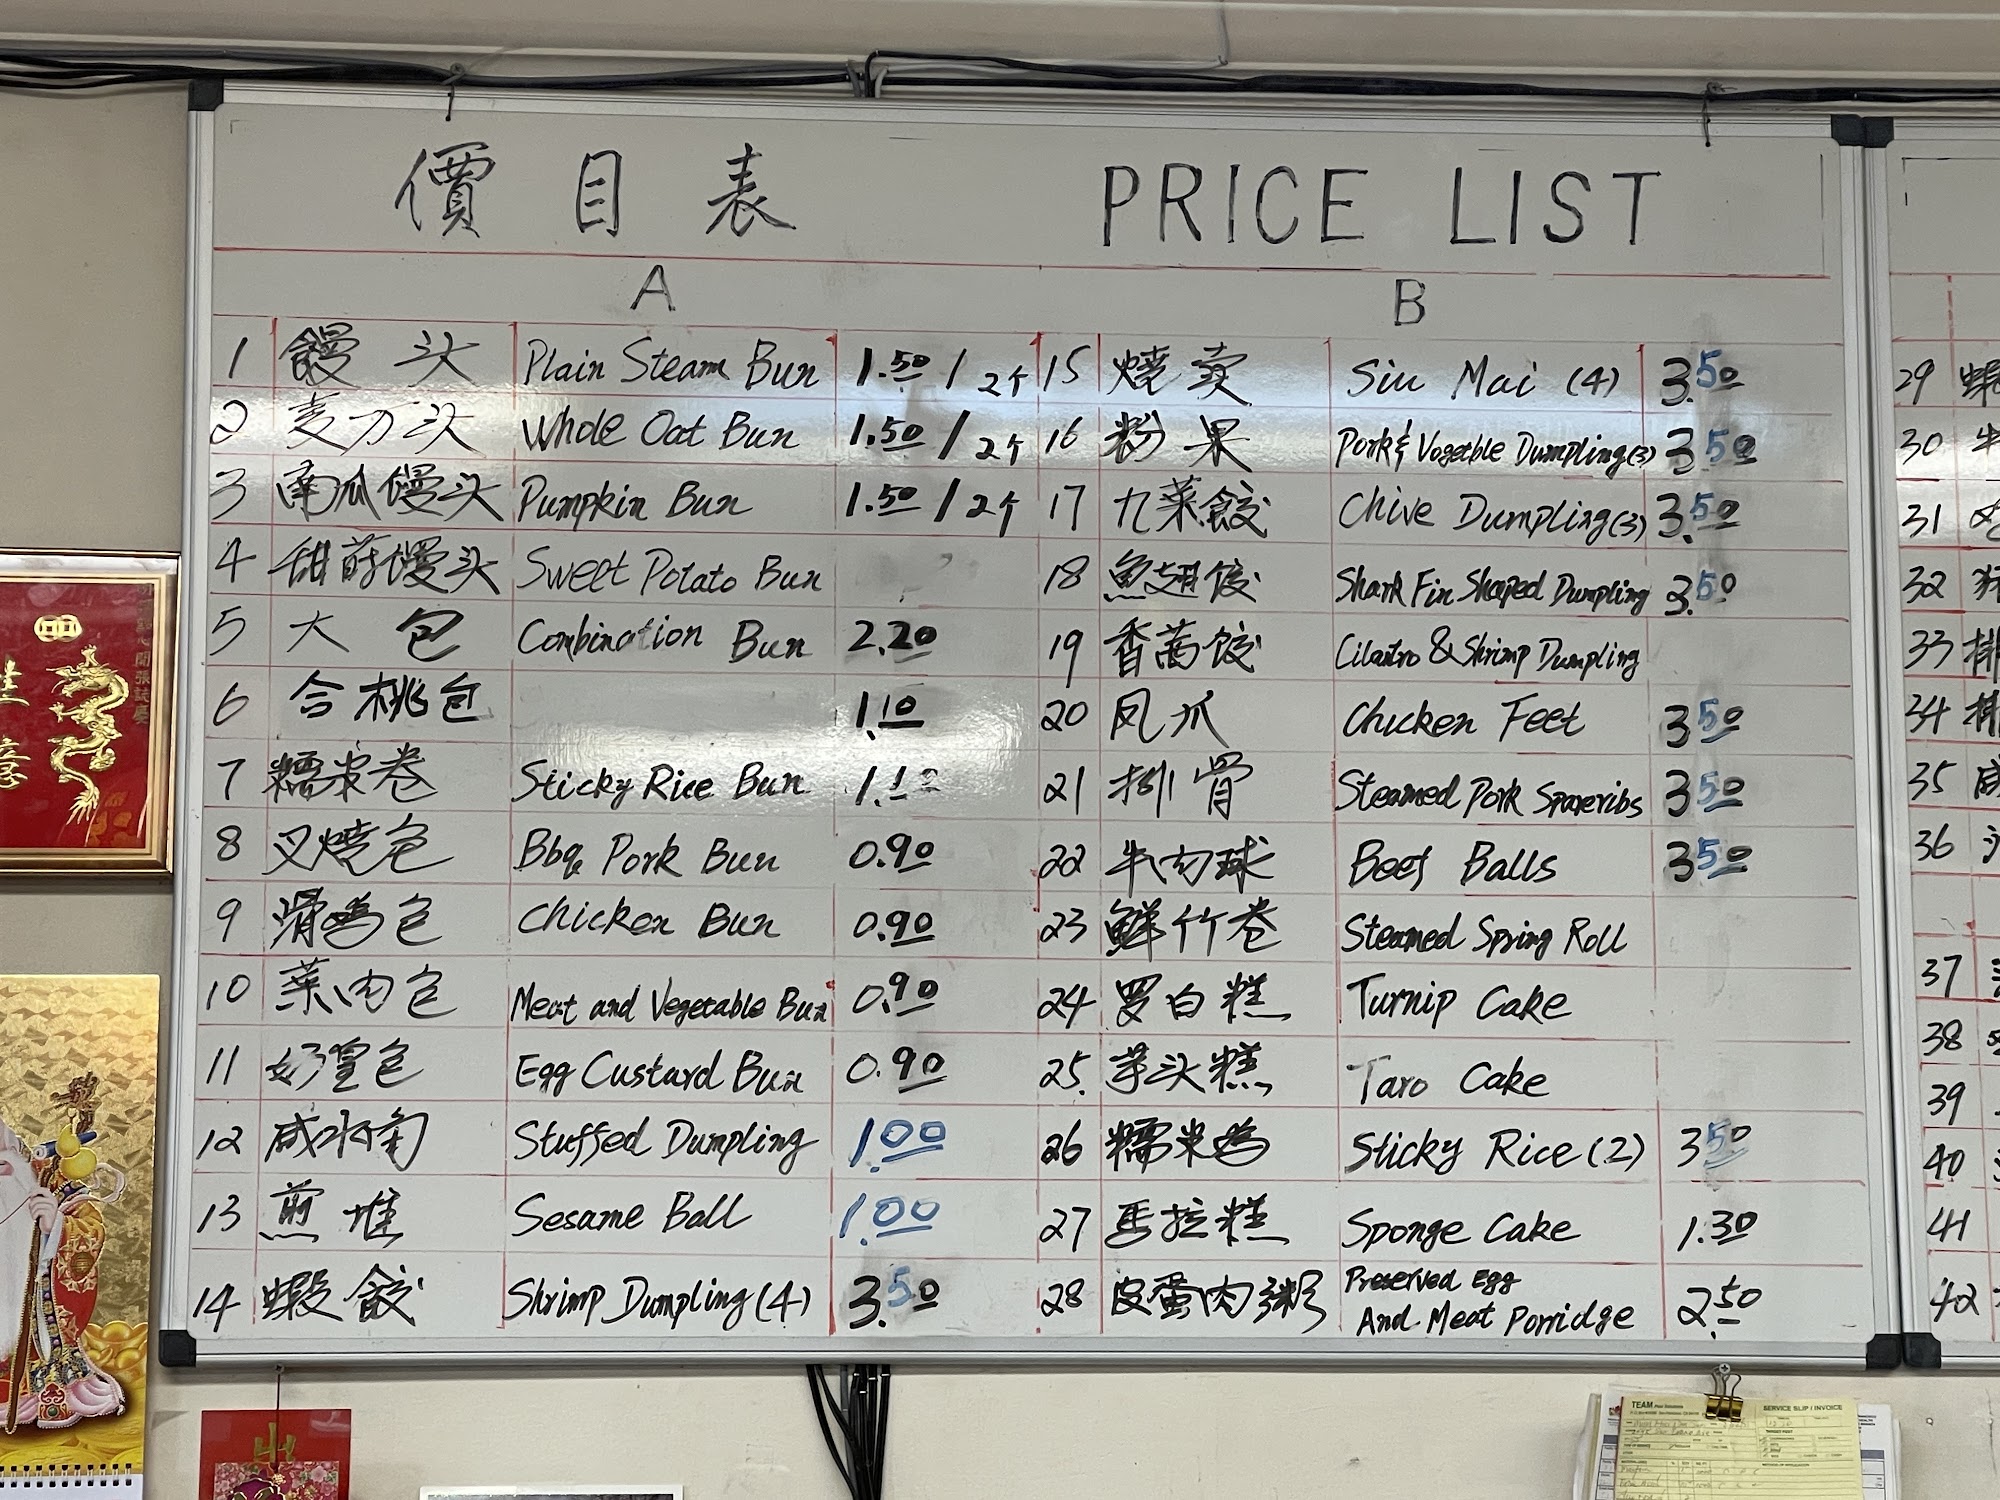 價目表 PRICE LIST
A B
1 饅头 Plain Steam Bun 1.50 / 2个
2 麦方头 Whole Oat Bun 1.50 / 2个
3 南瓜饅头 Pumpkin Bun 1.50 / 2个
4 甜萮饅头 Sweet Potato Bun
5 大包 Combination Bun 2.20
6 合桃包 1.10
7 糯米卷 Sticky Rice Bun 1.10
8 叉燒包 Bbq Pork Bun 0.90
9 滑鸡包 Chicken Bun 0.90
10 菜肉包 Meat and Vegetable Bun 0.90
11 奶皇包 Egg Custard Bun 0.90
12 咸水角 Stuffed Dumpling 1.00
13 煎堆 Sesame Ball 1.00
14 蝦餃 Shrimp Dumpling (4) 3.50
15 燒卖 Siu Mai (4) 3.50
16 粉果 Pork & Vogetble Dumpling(3) 3.50
17 九菜餃 Chive Dumpling(3) 3.50
18 魚翅饺 Shark Fin Shaped Dumpling 3.50
19 香茜饺 Cilantro & Shrimp Dumpling
20 凤爪 Chicken Feet 3.50
21 排骨 Steamed Pork Spareribs 3.50
22 牛肉球 Beef Balls 3.50
23 鮮竹卷 Steamed Spring Roll
24 罗白糕 Turnip Cake
25. 芋头糕 Taro Cake
26 糯米鸡 Sticky Rice (2) 3.50
27 馬拉糕 Sponge Cake 1.30
28 皮蛋肉粥 Preserved Egg
And Meat Porridge 2.50
29
30
31
32
33
34
35
36
37
38
39
40
41
42
TEAM
SERVICE SLIP / INVOICE